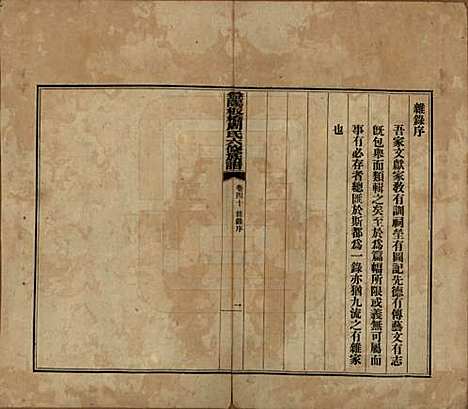 雜錄序
吾家文獻家教有訓祠塋有圖記先德有傳藝文有志
旣包舉而類輯之矣至於為篇幅所限或義無可屬而
事有必存者總匯於斯都為一錄亦猶九流之有雜家
也
板橋胡氏六修族譜
卷四十 雜錄序
一